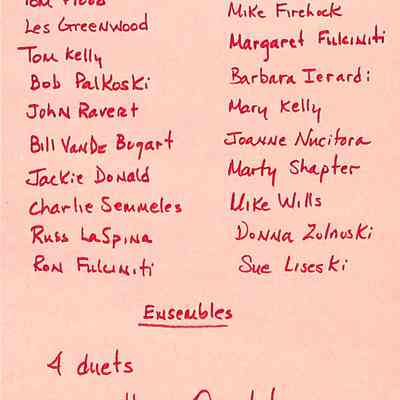 Les Greenwood
Tom Kelly
Bob Palkoski
John Ravert
Bill VanDe Bogart
Jackie Donald
Charlie Semmeles
Russ LaSpina
Ron Fulciniti
Mike Firehock
Margaret Fulciniti
Barbara Ierardi
Mary Kelly
Joanne Nucitora
Marty Shapter
Mike Wills
Donna Zolnoski
Sue Liseski
Ensembles
4 duets